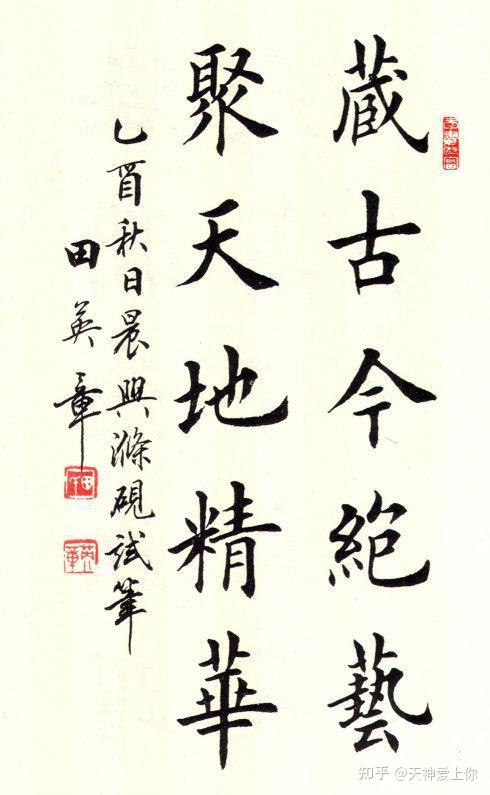 藏古今絶藝
聚天地精華
乙酉秋日晨興滌硯試筆
田英章
田
英章
知乎 @天神爱上你